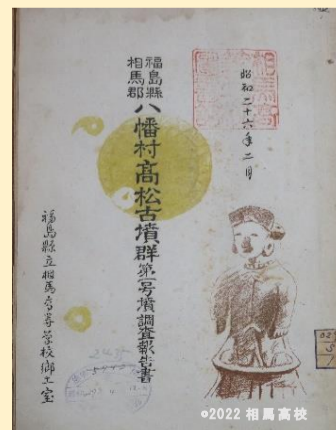 昭和二十六年二月
福島縣
相馬郡
八幡村高松古墳群第一号墳調査報告書
福島縣立相馬高等学校郷土室
©2022 相馬高校